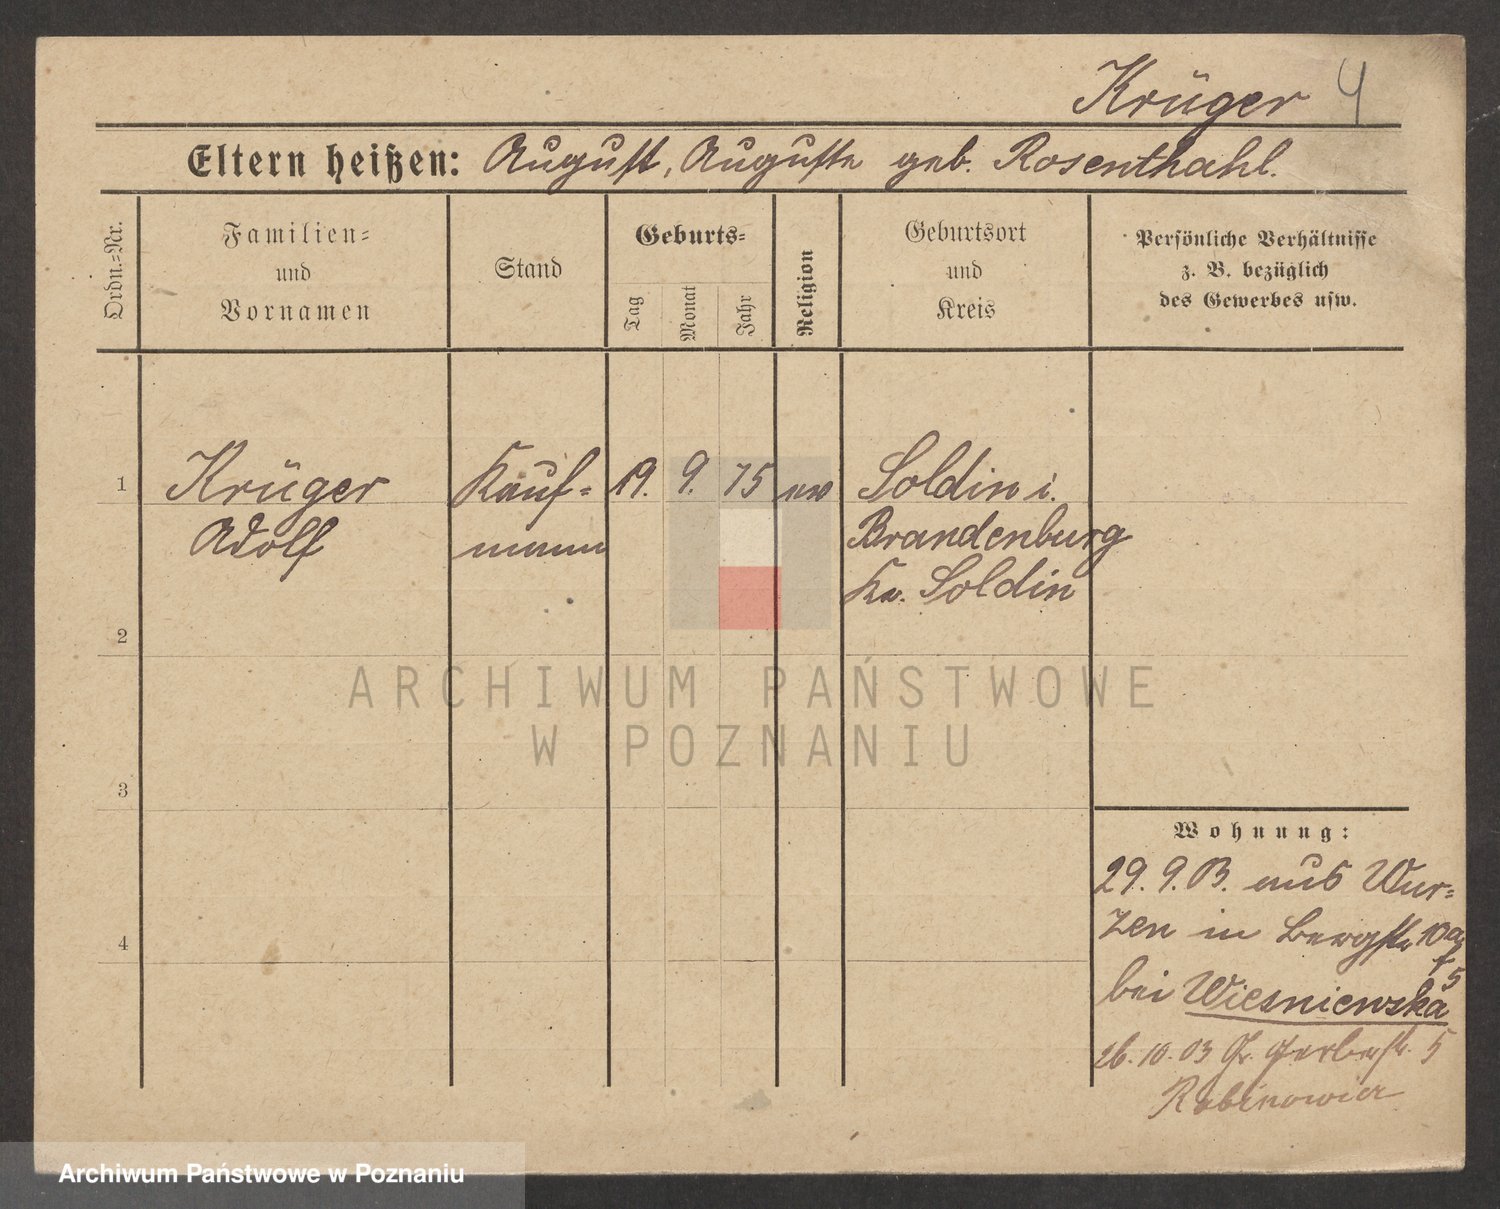 Krüger 4
Eltern heißen: August, Auguste geb. Rosenthahl.
Ordn.-Nr.
Familien-
und
Vornamen
Stand
Geburts-
Tag
Monat
Jahr
Religion
Geburtsort
und
Kreis
Persönliche Verhältnisse
z. B. bezüglich
des Gewerbes usw.
1 Krüger Kauf- 19. 9. 75 ev Soldin i.
Adolf mann Brandenburg
Kr. Soldin
2
ARCHIWUM PAŃSTWOWE
W POZNANIU
3
Wohnung:
29. 9. 03. aus Wur-
zen in Bergstr 10a
4
bei Wiesniewska
26. 10. 03 Gr. Gerberstr. 5
Archiwum Państwowe w Poznaniu